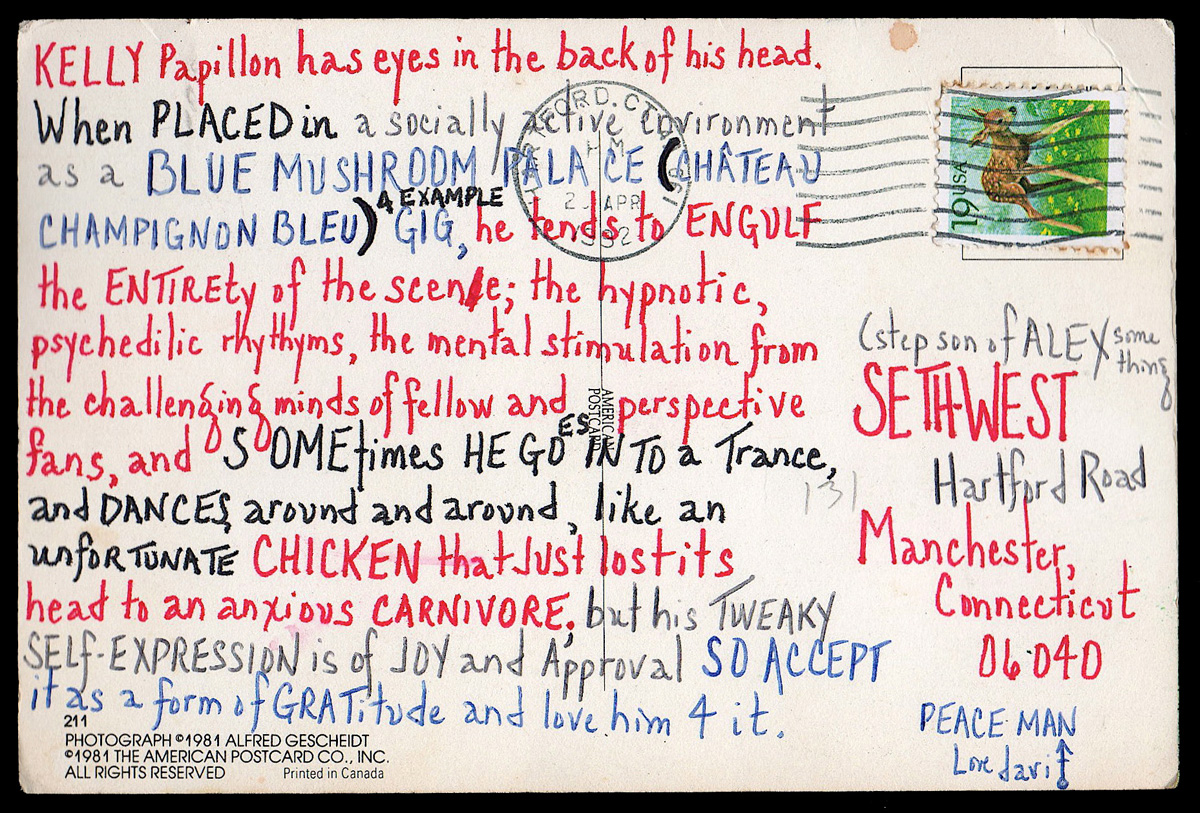 KELLY Papillon has eyes in the back of his head.
When PLACED in a socially active environment
as a BLUE MUSHROOM PALACE (CHÂTEAU
CHAMPIGNON BLEU) 4 EXAMPLE GIG, he tends to ENGULF
the ENTIREty of the scene; the hypnotic,
psychedilic rhythyms, the mental stimulation from
the challenging minds of fellow and perspective
fans, and SOMEtimes HE GOES INTO a Trance,
and DANCES, around and around, like an
unfORTUNATE CHICKEN that Just lost its
head to an anxious CARNIVORE; but his TWEAKY
SELf-EXPRESSION is of JOY and Approval SO ACCEPT
it as a form of GRATitude and love him 4 it.
211
PHOTOGRAPH ©1981 ALFRED GESCHEIDT
©1981 THE AMERICAN POSTCARD CO., INC.
ALL RIGHTS RESERVED Printed in Canada
AMERICAN
POSTCARD
FORD. CT
PM
2 APR
1992
19 USA
(step son of ALEX some
thing
SETH WEST
131 Hartford Road
Manchester,
Connecticut
06040
PEACE MAN
Love davi